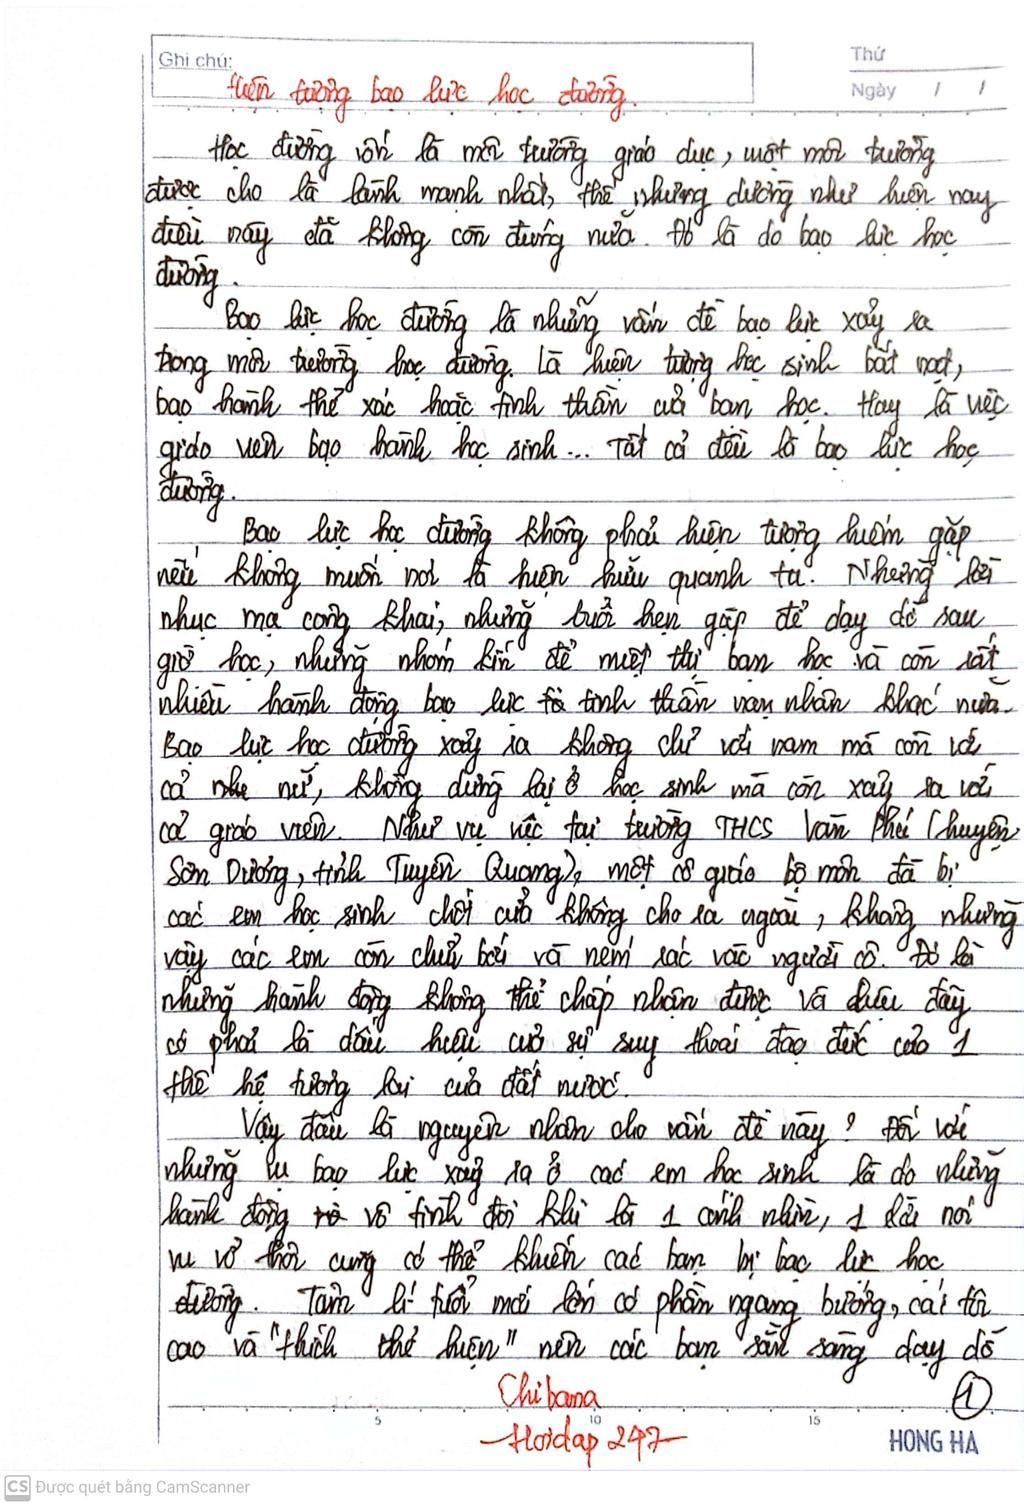 Ghi chú:
Thứ
Ngày / /
Hiện tượng bạo lực học đường.
Học đường vốn là môi trường giáo dục, một môi trường
được cho là lành mạnh nhất, thế nhưng dường như hiện nay
điều này đã không còn đúng nữa. Đó là do bạo lực học
đường.
Bạo lực học đường là những vấn đề bạo lực xảy ra
trong môi trường học đường. Là hiện tượng học sinh bắt nạt,
bạo hành thể xác hoặc tinh thần của bạn học. Hay là việc
giáo viên bạo hành học sinh... Tất cả đều là bạo lực học
đường.
Bạo lực học đường không phải hiện tượng hiếm gặp
nếu không muốn nói là hiện hữu quanh ta. Những lời
nhục mạ công khai, những buổi hẹn gặp để dạy dỗ sau
giờ học, những nhóm kín để miệt thị bạn học và còn rất
nhiều hành động bạo lực tinh thần nạn nhân khác nữa.
Bạo lực học đường xảy ra không chỉ với nam mà còn với
cả nữ, không dừng lại ở học sinh mà còn xảy ra với
cả giáo viên. Như vụ việc tại trường THCS Văn Phú (huyện
Sơn Dương, tỉnh Tuyên Quang), một cô giáo bộ môn đã bị
các em học sinh chốt cửa không cho ra ngoài, không những
vậy các em còn chửi bới và ném rác vào người cô. Đó là
những hành động không thể chấp nhận được và liệu đây
có phải là dấu hiệu của sự suy thoái đạo đức của 1
thế hệ tương lai của đất nước.
Vậy đâu là nguyên nhân cho vấn đề này? Đối với
những vụ bạo lực xảy ra ở các em học sinh là do những
hành động vô tình đôi khi là 1 ánh nhìn, 1 lời nói
vu vơ thôi cũng có thể khiến các bạn bị bạo lực học
đường. Tâm lí tuổi mới lớn có phần ngang bướng, cái tôi
cao và "thích thể hiện" nên các bạn sẵn sàng dạy dỗ
Chibana
1
5 10 15
-Hoidap 247-
HONG HA
CS Được quét bằng CamScanner